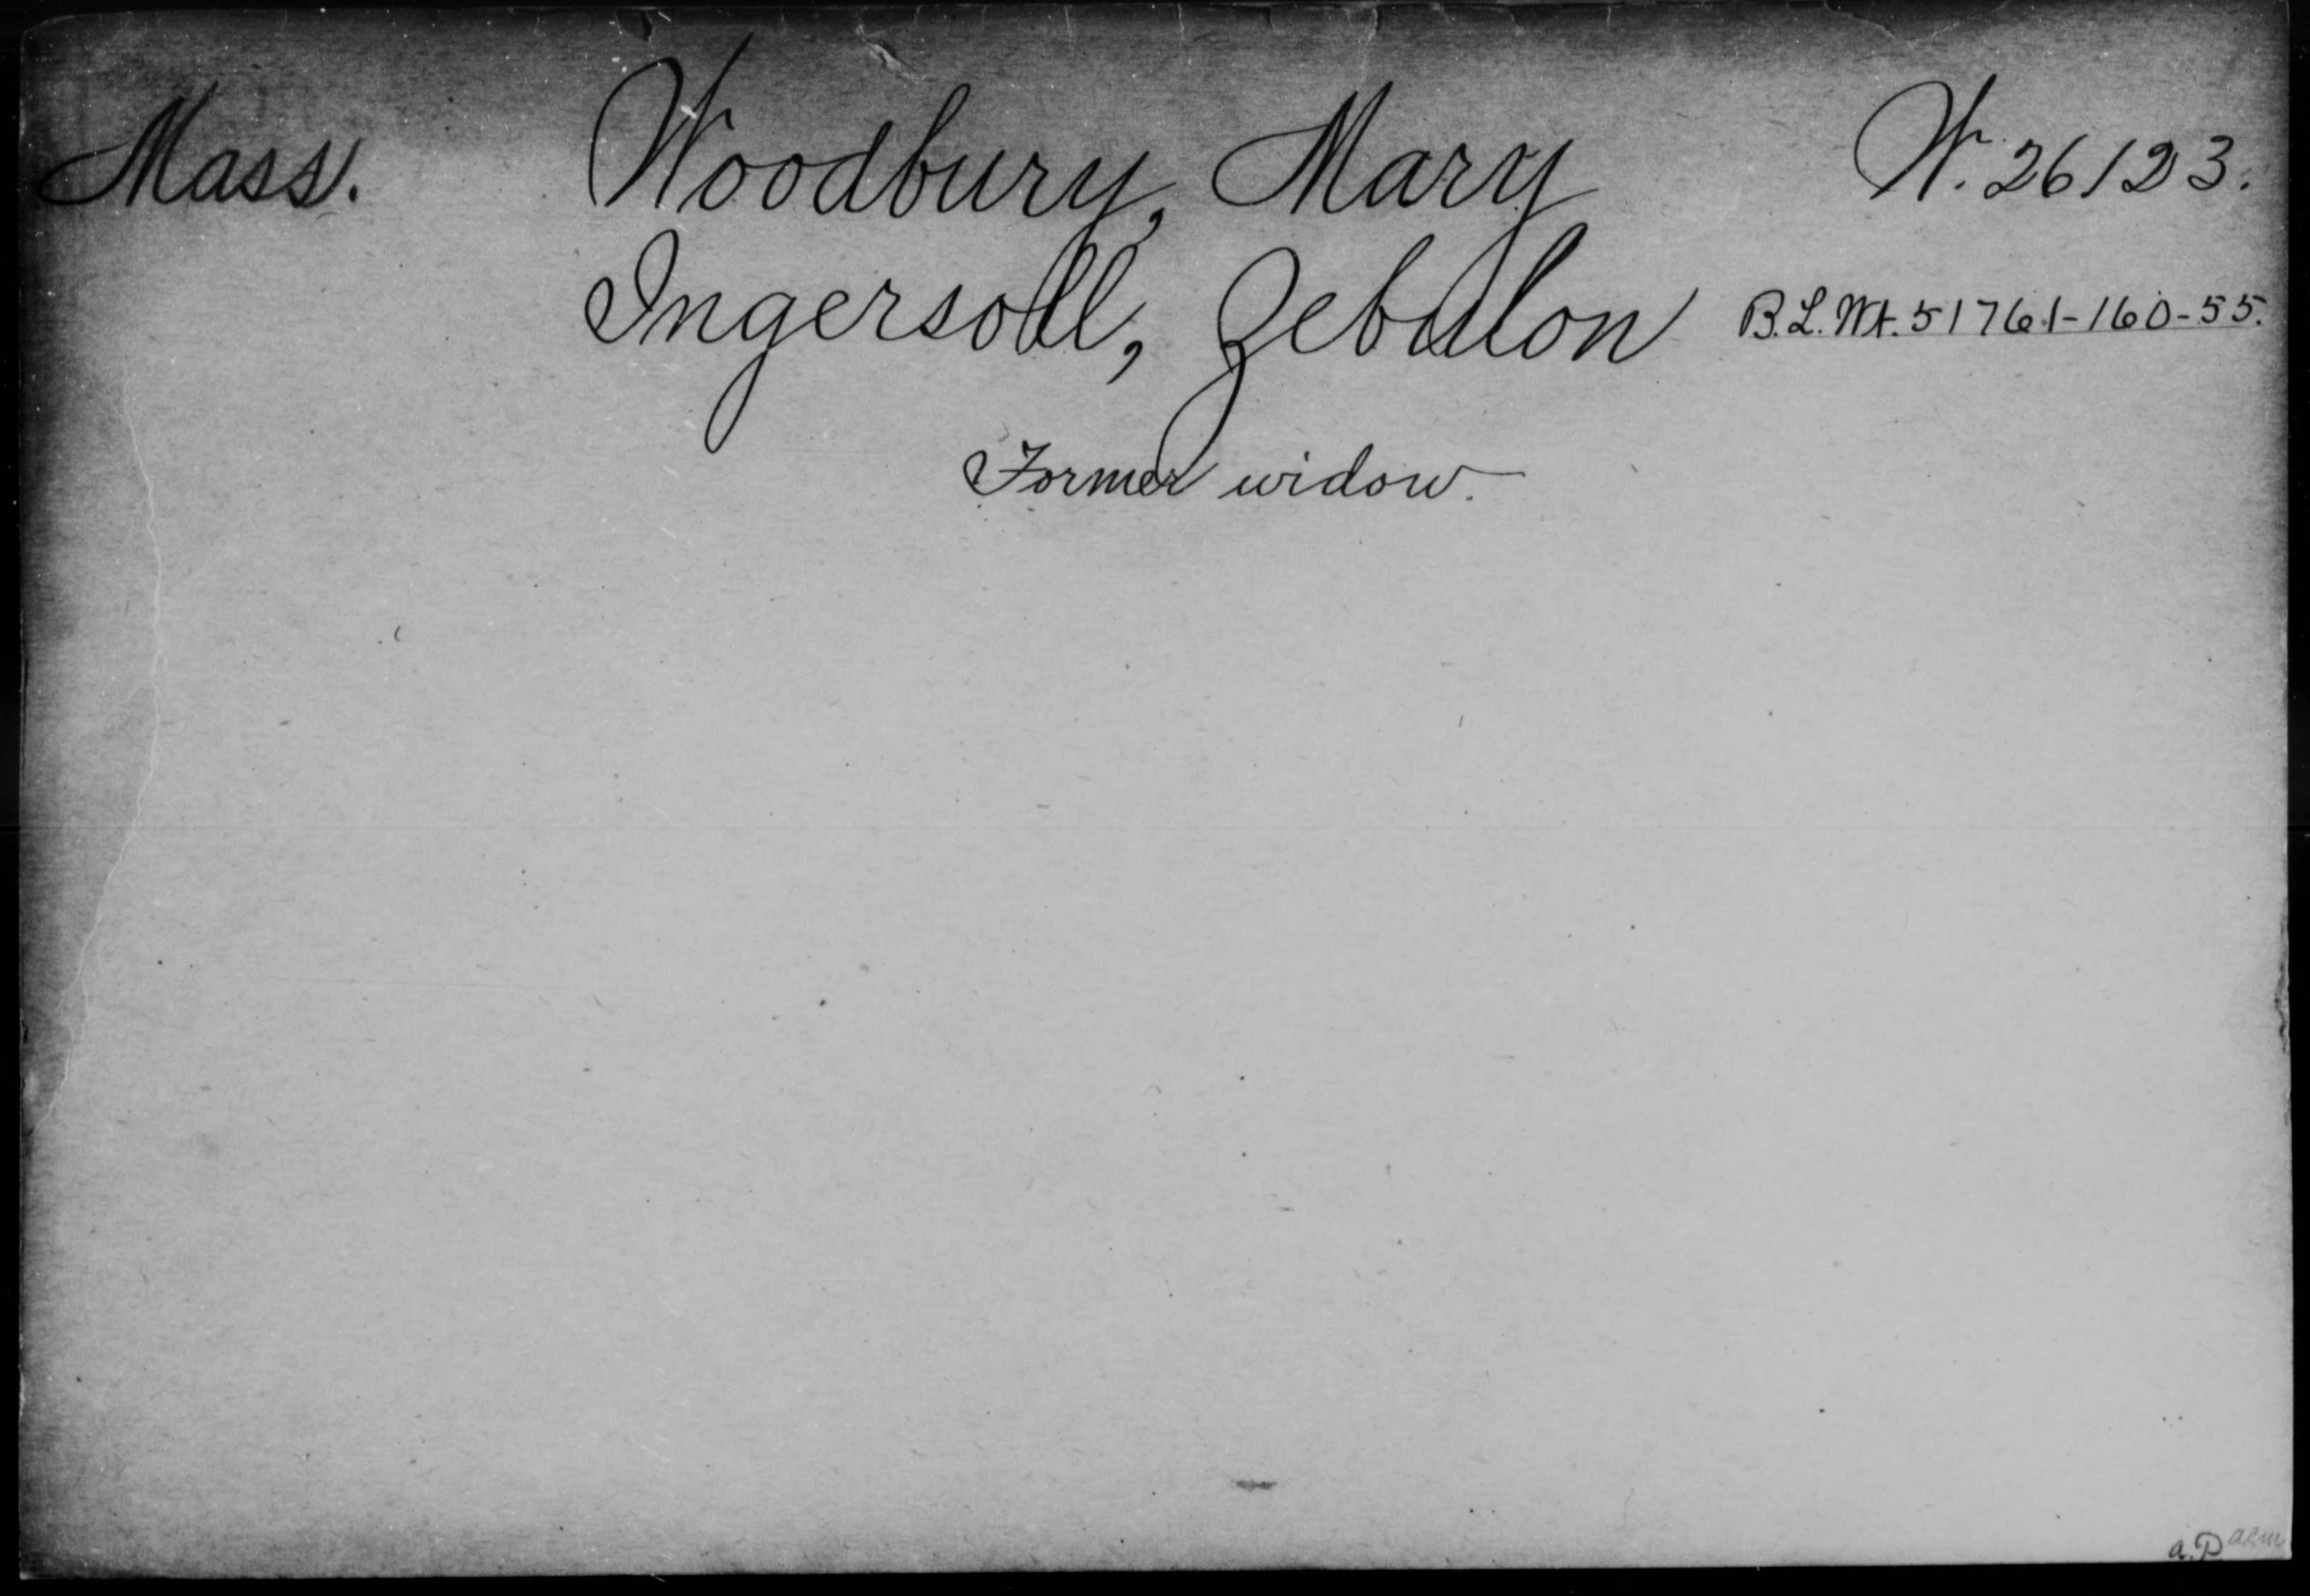 Mass. Woodbury, Mary W. 26123.
Ingersoll, Zebulon B.L.Wt. 51761-160-55.
Former widow.
a.P